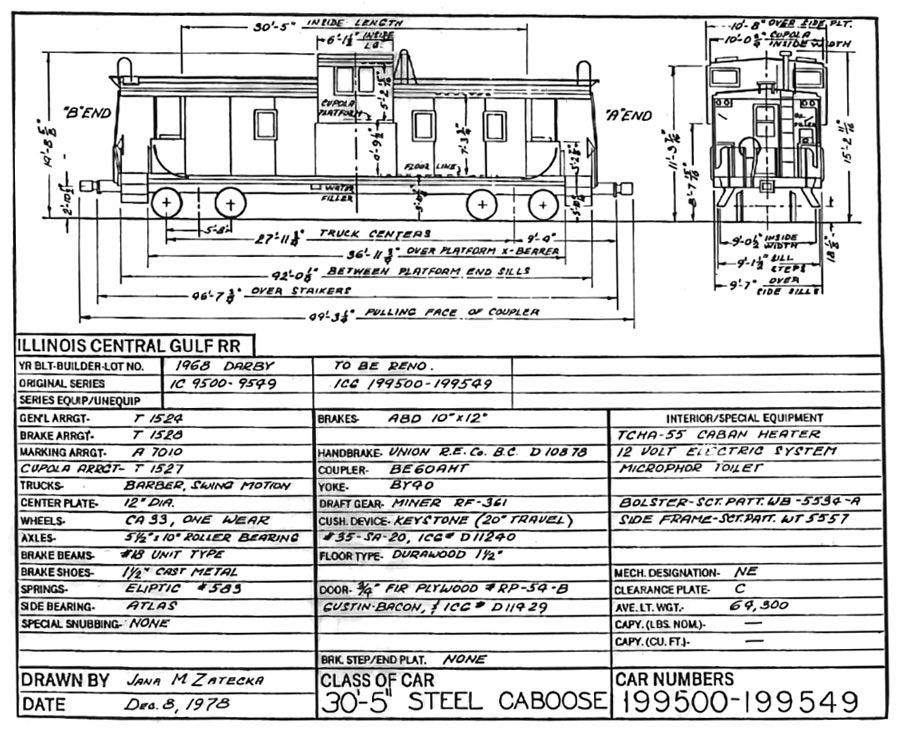 30'-5" INSIDE LENGTH
6'-1½" INSIDE LG.
10'-8" OVER SIDE PLT.
CUPOLA INSIDE WIDTH
"B" END
CUPOLA PLATFORM
"A" END
FLOOR LINE
WATER FILLER
5'-8"
27'-11¾" TRUCK CENTERS
9'-9"
36'-11¾" OVER PLATFORM X-BEARER
42'-0½" BETWEEN PLATFORM END SILLS
46'-7¾" OVER STRIKERS
49'-3¼" PULLING FACE OF COUPLER
9'-0½" INSIDE WIDTH
9'-1½" SILL STEPS
9'-7" OVER SIDE SILLS
ILLINOIS CENTRAL GULF RR
YR BLT-BUILDER-LOT NO. 1968 DARBY TO BE RENO.
ORIGINAL SERIES IC 9500-9549 ICG 199500-199549
SERIES EQUIP/UNEQUIP
GEN'L ARRGT- T 1524 BRAKES- ABD 10"x12" INTERIOR/SPECIAL EQUIPMENT
BRAKE ARRGT- T 1528 TCHA-55 CABAN HEATER
MARKING ARRGT- A 7010 HANDBRAKE- UNION R.E. Co. B.C. D 10878 12 VOLT ELECTRIC SYSTEM
CUPOLA ARRGT- T 1527 COUPLER- BE60AHT MICROPHOR TOILET
TRUCKS- BARBER, SWING MOTION YOKE- BY40
CENTER PLATE- 12" DIA. DRAFT GEAR- MINER RF-361 BOLSTER-SCT. PATT. WB-5534-A
WHEELS- CA 33, ONE WEAR CUSH. DEVICE- KEYSTONE (20" TRAVEL) SIDE FRAME-SCT. PATT. WT 5557
AXLES- 5½"x10" ROLLER BEARING #35-SA-20, ICG# D11240
BRAKE BEAMS- #18 UNIT TYPE FLOOR TYPE- DURAWOOD 1½"
BRAKE SHOES- 1½" CAST METAL MECH. DESIGNATION- NE
SPRINGS- ELIPTIC #583 DOOR- ¾" FIR PLYWOOD #RP-54-B CLEARANCE PLATE- C
SIDE BEARING- ATLAS GUSTIN-BACON, & ICG# D11429 AVE. LT. WGT.- 64,300
SPECIAL SNUBBING- NONE CAPY. (LBS. NOM.)- —
CAPY. (CU. FT.)- —
BRK. STEP/END PLAT. NONE
DRAWN BY JANA M ZATECKA CLASS OF CAR CAR NUMBERS
DATE DEC. 8, 1978 30'-5" STEEL CABOOSE 199500-199549